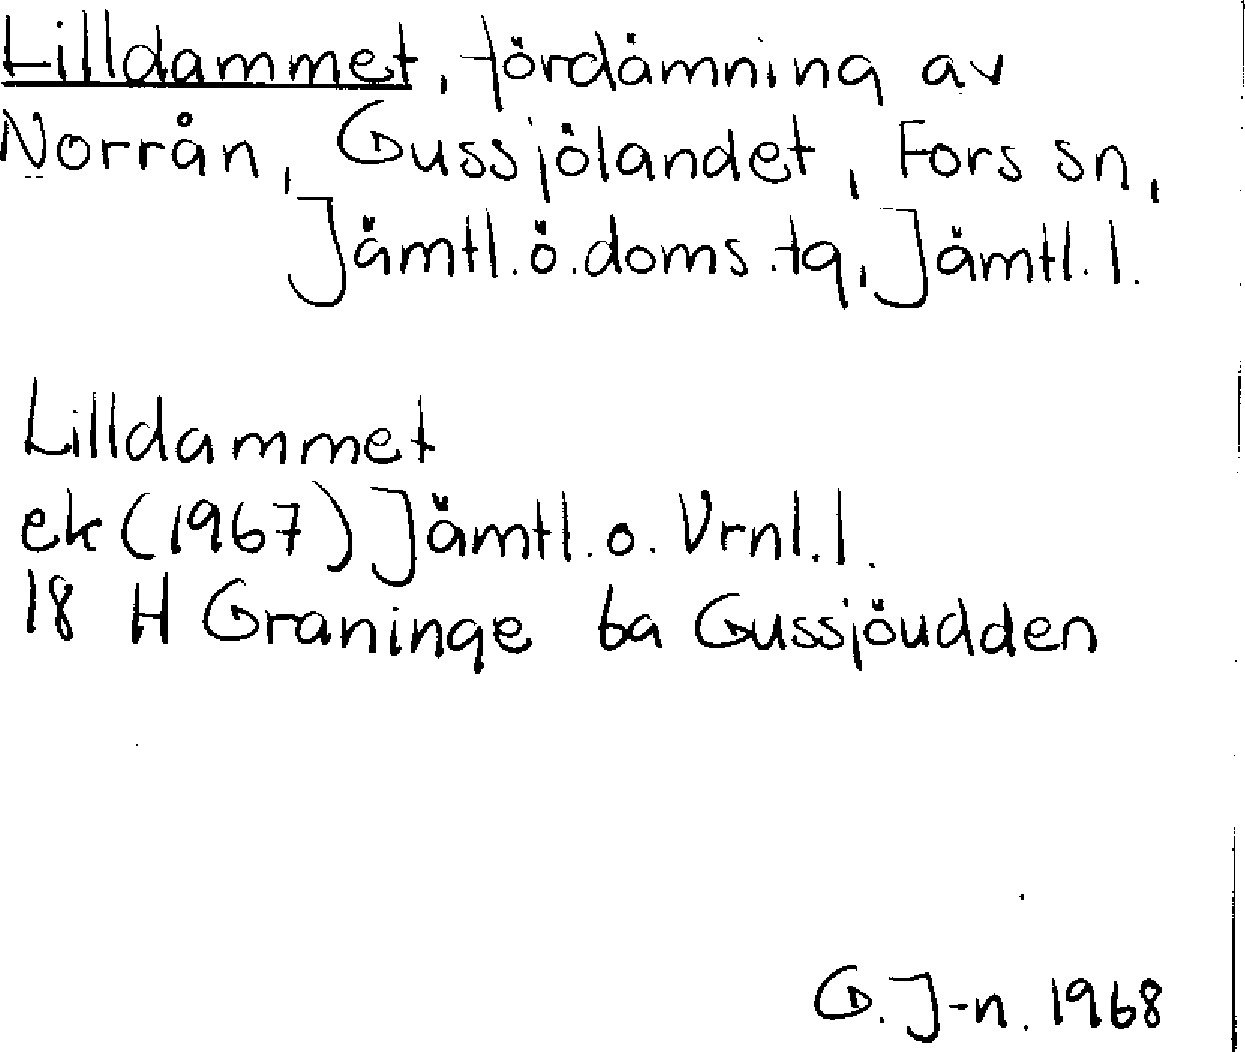 Lilldammet, fördämning av
Norrån, Gussjölandet, Fors sn,
Jämtl. ö. doms. tg, Jämtl. l.
Lilldammet
ek (1967) Jämtl. o. Vrnl. l.
18 H Graninge 6a Gussjöudden
G. J-n. 1968